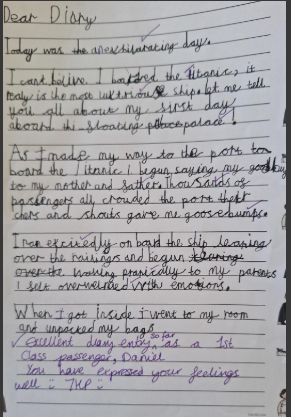 Dear Diary
Today was the an exhilarating day.
I cant belive. I boarded the Titanic, it
realy is the most luxtriouse ship. let me tell
you all about my first day
aboard this floating palace!
As I made my way to the port to
board the Titanic I begun saying my goodbuy
to my mother and father. Thousands of
passengers all crouded the port theft
chers and shouts gave me goosebumps.
I ran excitedly on bord the ship leaning
over the railings and begun
over the waving franticaly to my parents
I felt overwelmed with emotions.
When I got inside i went to my room
and unpacked my bags
✓ Excellent diary entry so far as a 1st
Class passenger, Daniel
You have expressed your feelings
well :: 7HP :